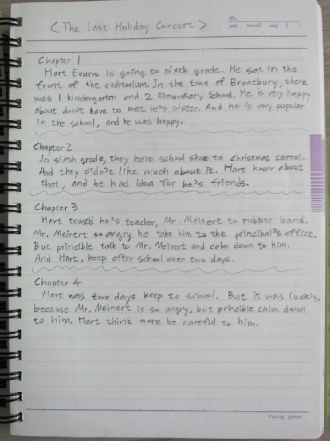 < The Last Holiday Concert >
No.
year month day ( )
Chapter 1
Hart Evans is going to sixth grade. He sat in the
front of the auditorium. In the town of Brantbury, there
was 1 kindergarten and 2 Elementary School. He is very happy
about don't have to met he's sister. And he is very popular
in the school, and he was happy.
Chapter 2
In sixth grade, they have school to christmas carrol.
And they didn't like much about it. Hart know about
that, and he had idea for he's friends.
Chapter 3
Hart he's teacher, Mr. Meinert to rubber band.
Mr. Meinert so angry he take him to the principal's office.
But princible talk to Mr. Meinert and calm down to him.
And, Hart, keep after school over two days.
Chapter 4
Hart was two days keep to school. But it was luckly,
because Mr. Meinert is so angry, but princible calm down
to him. Hart think more be careful to him.
Young green